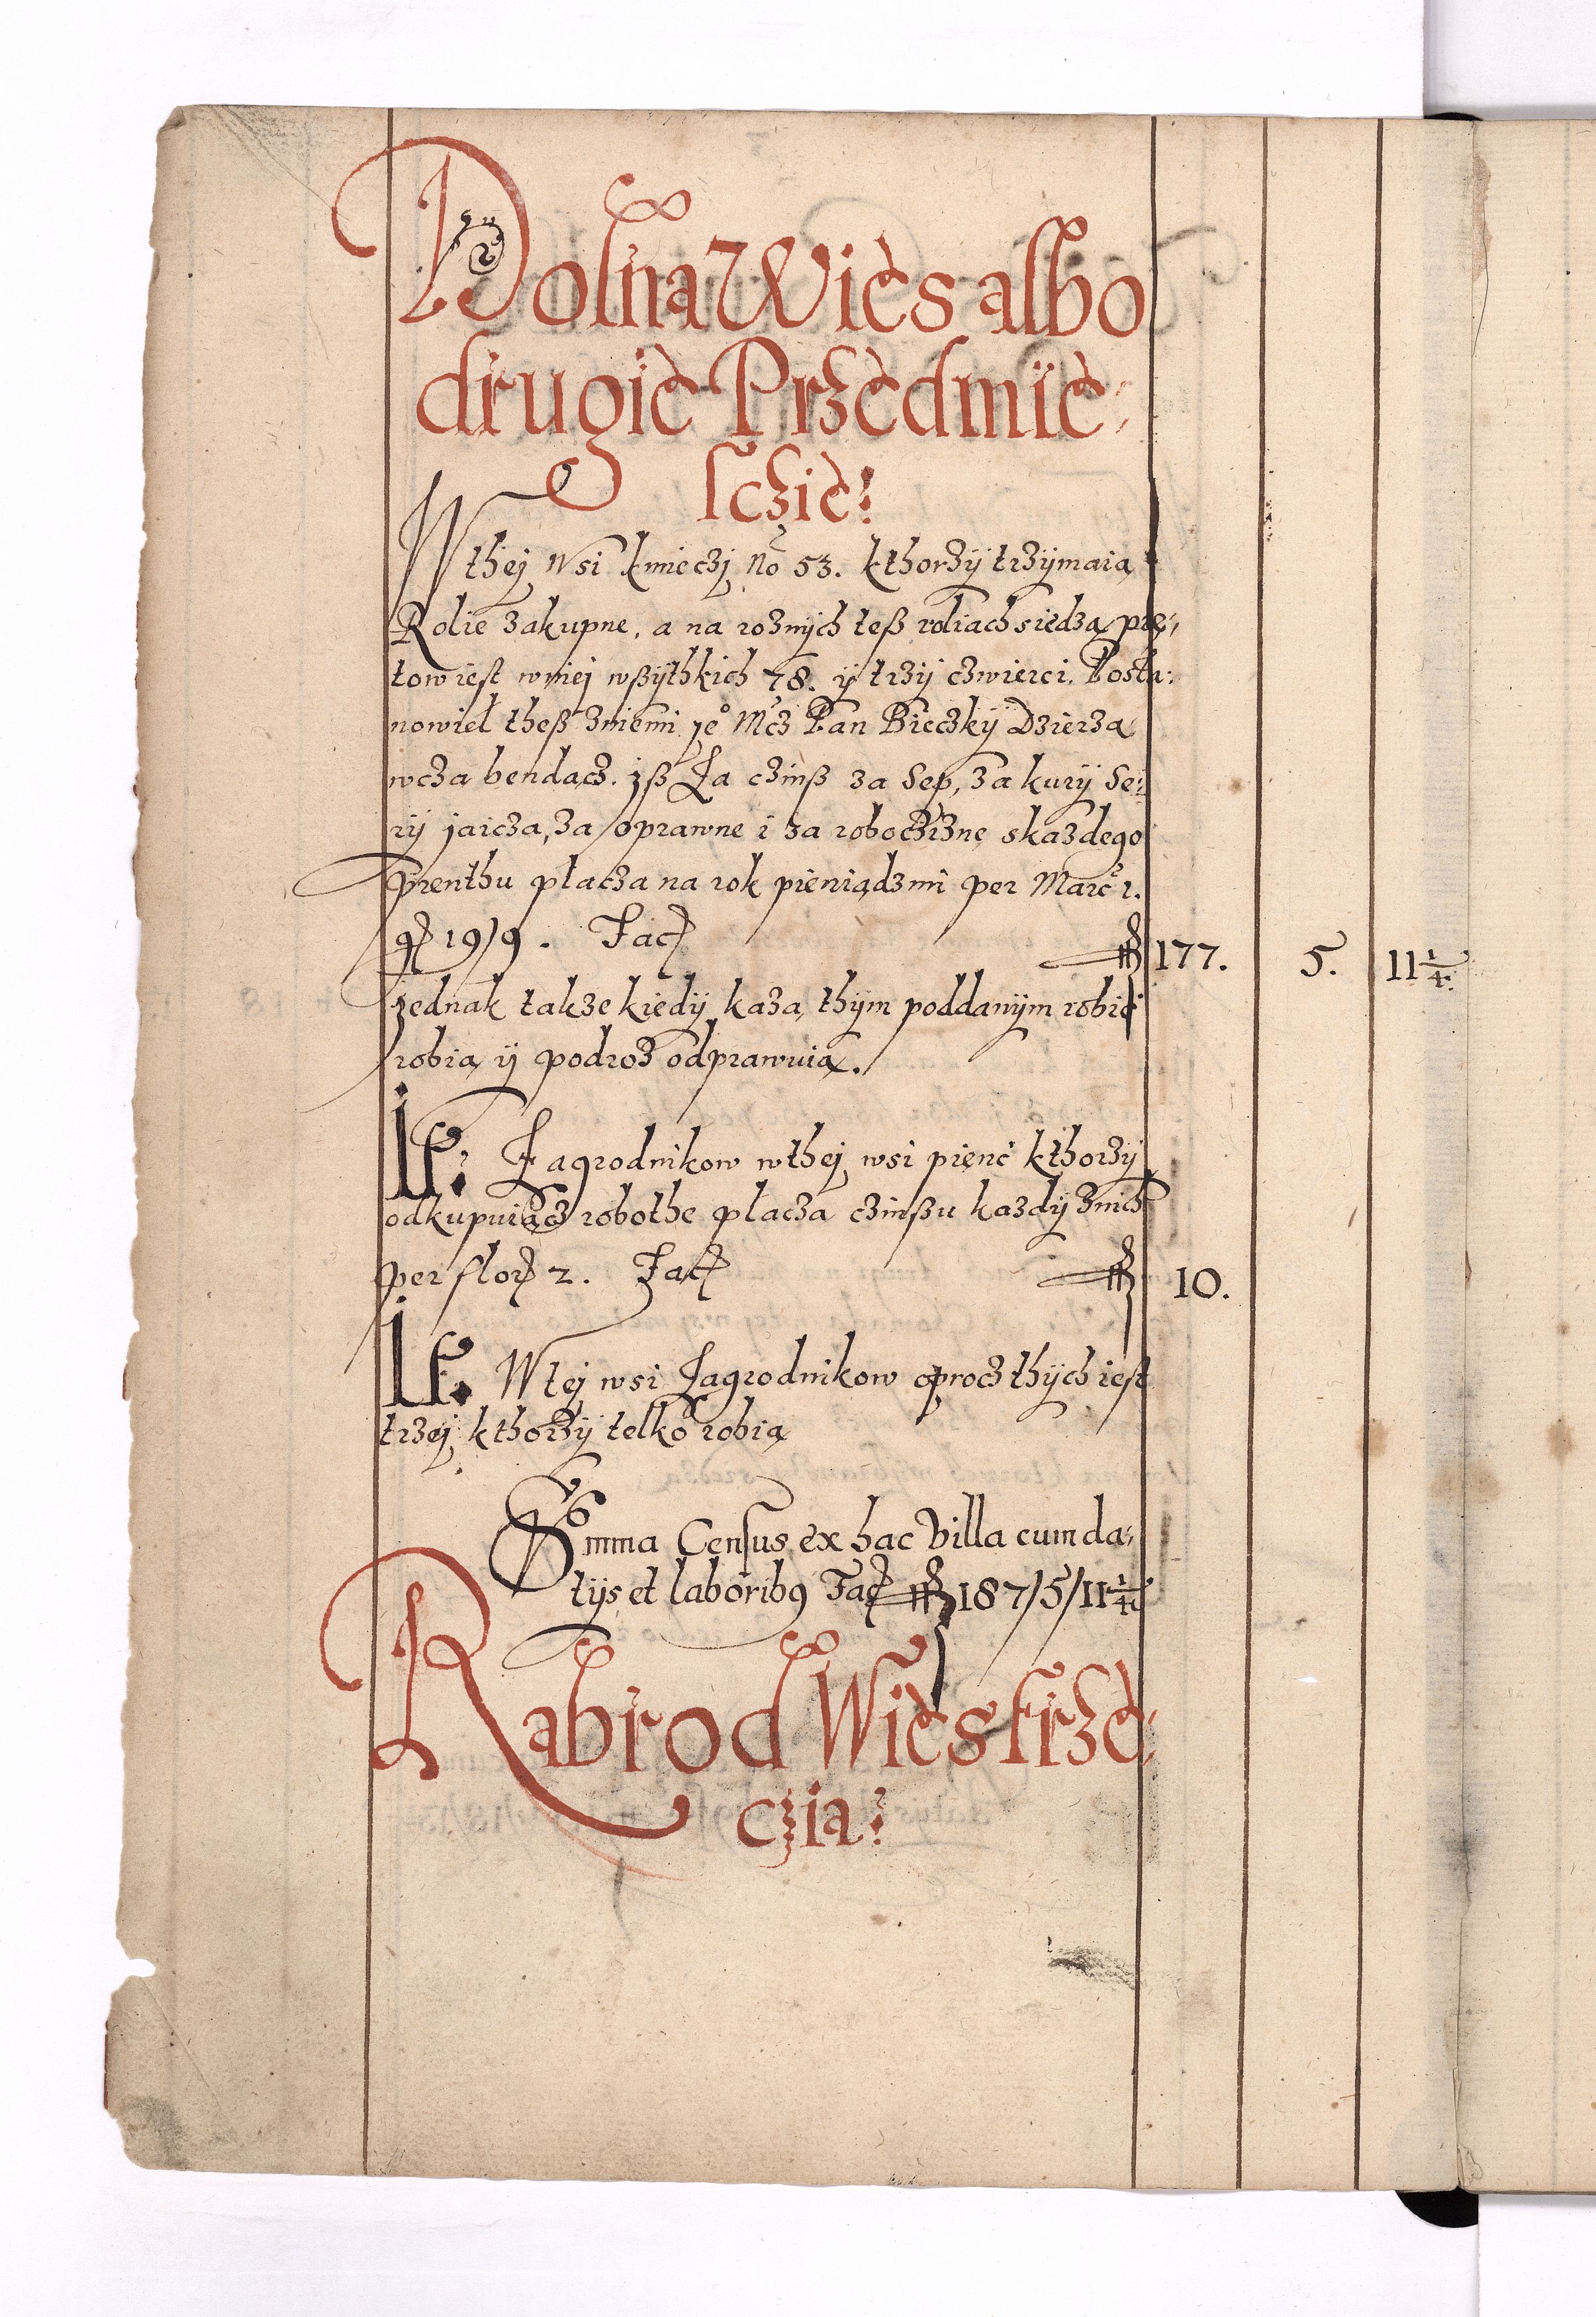 Dolna Wies albo
drugie Przedmie-
sczie:
W thej wsi kmieczj No 53. kthorzÿ trzÿmaia
Rolie zakupne, a na roznÿch teß roliach siedza, prę-
tow iest wniej wßÿthkich 78. ÿ trzÿ czwierci. Posta-
nowieł theß zniemi Je° Mcz Pan Bieczkÿ Dzierza
wcza bendacz. jß Za czinß za Sep, za kurÿ Se-
rÿ jaicza, za oprawne i za roboczizne skazdego
prenthu płacza na rok pieniądzmi per Marc 1.
gr 19/9. Fac 177. 5. 11 1/4
jednak takze kiedÿ kaza, thÿm poddanÿm robić
robia ÿ podroz odprawuią.
It: Zagrodnikow wthej wsi pięnć kthorzÿ
odkupuiącz robothe płacza czinßu kazdÿ znich
per flor 2. Fac 10.
It. W tej wsi Zagrodnikow oprocz thÿch iest
trzej kthorzÿ telko robią
Summa Census ex hac Villa cum da-
tÿs et laborib9 Fac 187/5/11 1/4
Rabrod Wies trze-
czia: